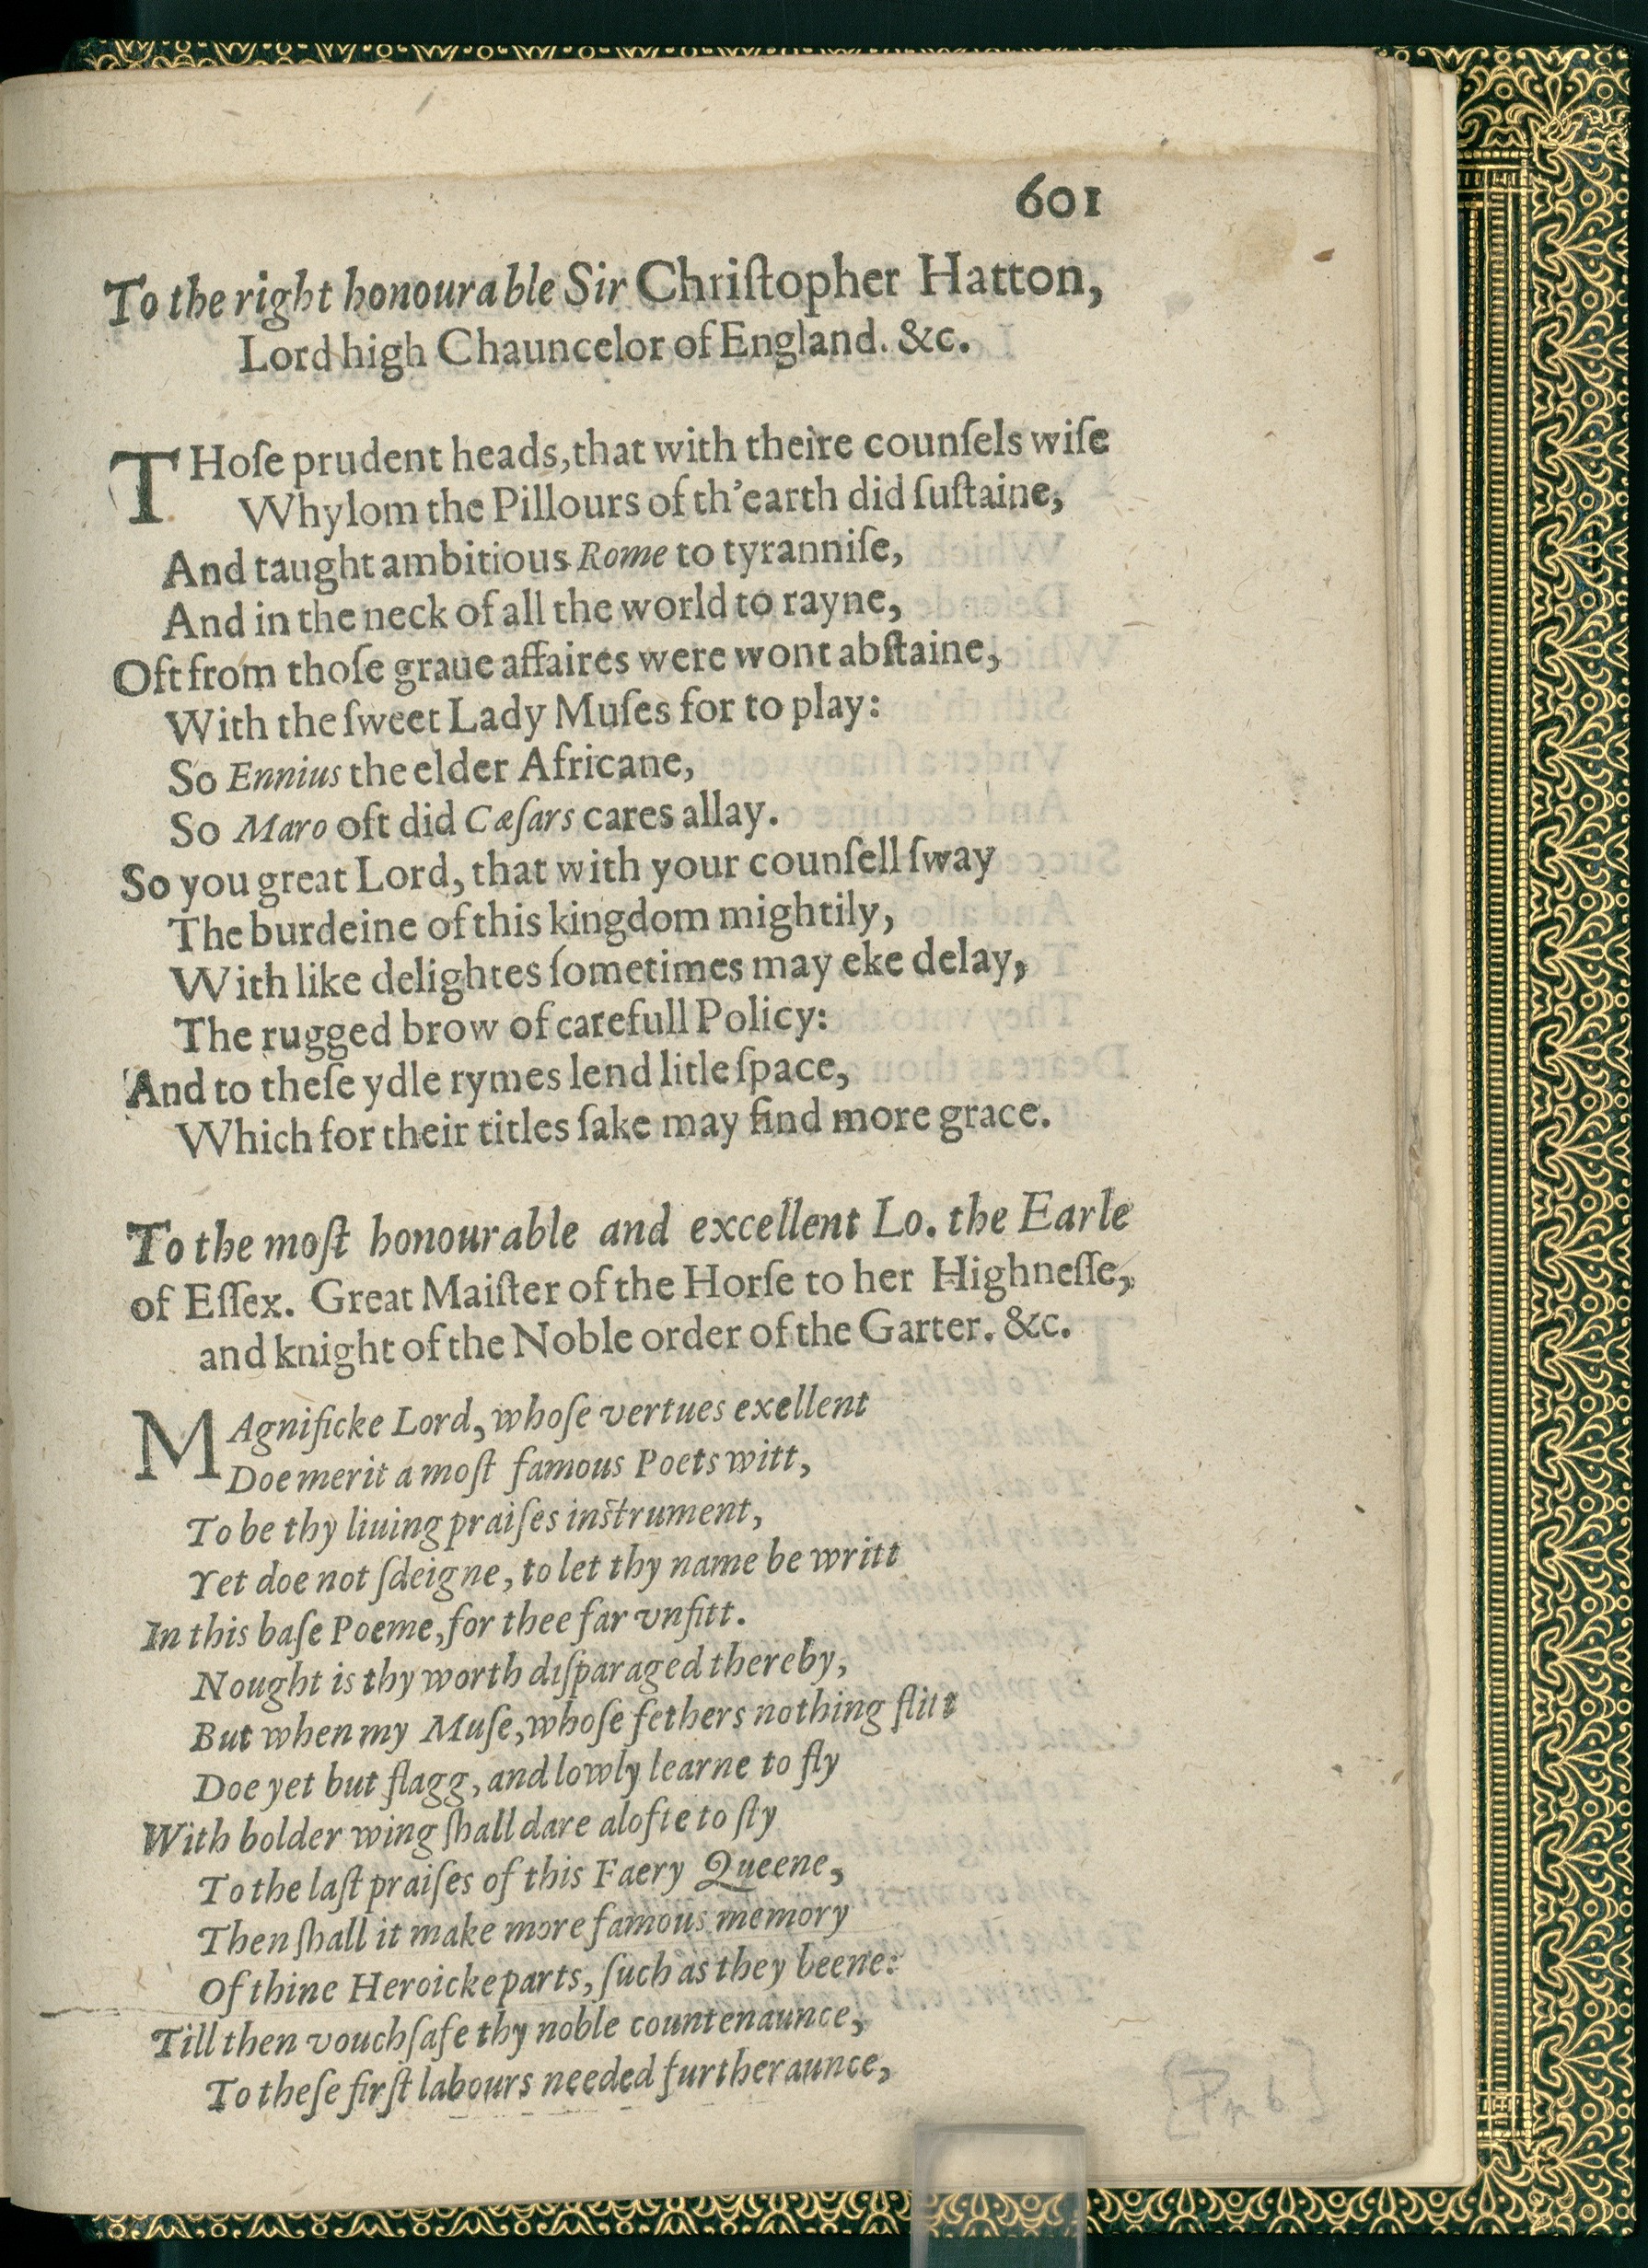 601
To the right honourable Sir Chriſtopher Hatton,
Lord high Chauncelor of England. &c.
THoſe prudent heads, that with theire counſels wiſe
Whylom the Pillours of th'earth did ſuſtaine,
And taught ambitious Rome to tyranniſe,
And in the neck of all the world to rayne,
Oft from thoſe graue affaires were wont abſtaine,
With the ſweet Lady Muſes for to play:
So Ennius the elder Africane,
So Maro oft did Cæſars cares allay.
So you great Lord, that with your counſell ſway
The burdeine of this kingdom mightily,
With like delightes ſometimes may eke delay,
The rugged brow of carefull Policy:
And to theſe ydle rymes lend litle ſpace,
Which for their titles ſake may find more grace.
To the moſt honourable and excellent Lo. the Earle
of Eſſex. Great Maiſter of the Horſe to her Highneſſe,
and knight of the Noble order of the Garter. &c.
MAgnificke Lord, whoſe vertues exellent
Doe merit a moſt famous Poets witt,
To be thy liuing praiſes inſtrument,
Yet doe not ſdeigne, to let thy name be writt
In this baſe Poeme, for thee far vnfitt.
Nought is thy worth diſparaged thereby,
But when my Muſe, whoſe fethers nothing flitt
Doe yet but flagg, and lowly learne to fly
With bolder wing ſhall dare alofte to ſty
To the laſt praiſes of this Faery Queene,
Then ſhall it make more famous memory
Of thine Heroicke parts, ſuch as they beene:
Till then vouchſafe thy noble countenaunce,
To theſe firſt labours needed furtheraunce,